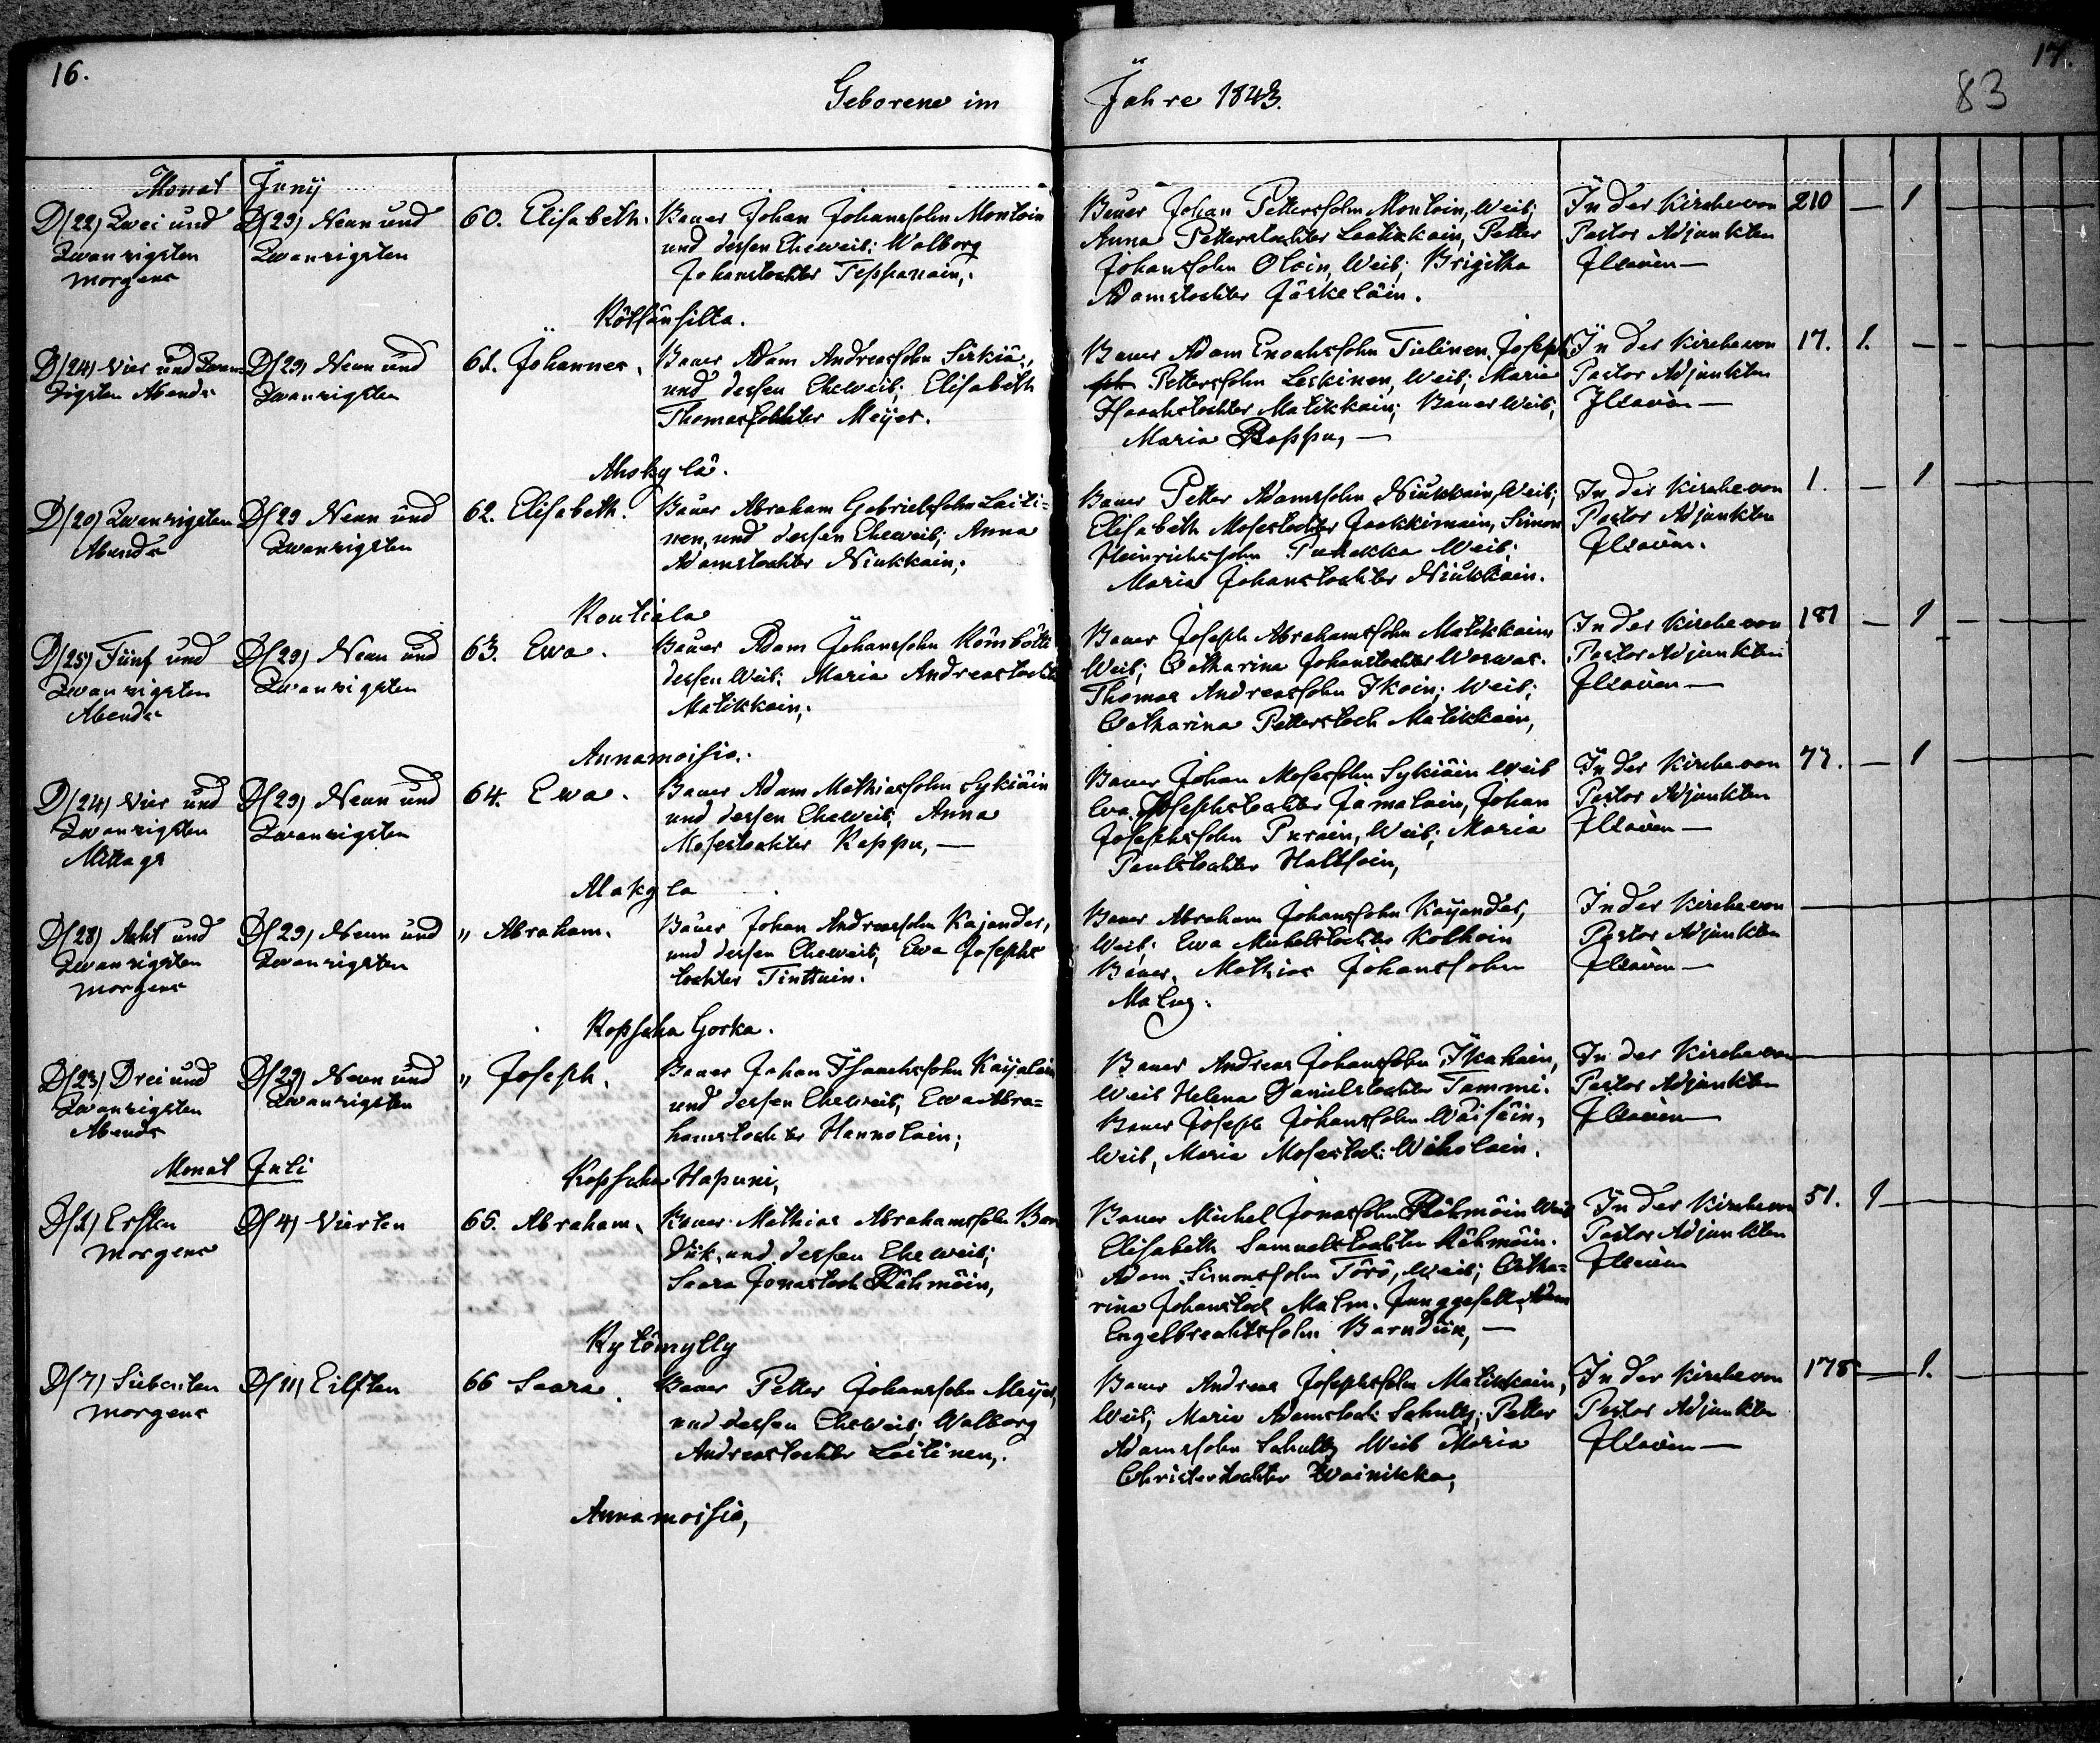 16.
17.
83
Geborene im Jahre 1843.
Monat Juny
D/22) Zwei und
Zwanzigsten
morgens
D/29) Neun und
Zwanzigsten
60. Elisabeth.
Bauer Johan Johanssohn Montoin
und dessen Eheweib; Walborg
Johanstochter Teppanain,
Rötfänsilta.
Bauer Johan Petterssohn Montoin, Weib;
Anna Petterstochter Laatikkain, Petter
Johanssohn Olain, Weib; Brigitha
Adamstochter Jäskeläin.
In der Kirche von
Pastor Adjunkten
Jlsaien—
210 — 1 —
D/24) Vier und Zwan-
zigsten Abends
D/29) Neun und
Zwanzigsten
61. Johannes.
Bauer Adam Andreassohn Sirkiä,
und dessen Eheweib; Elisabeth
Thomastochter Meyer.
Ahokylä.
Bauer Adam Enochssohn Tielinen, Joseph
Petterssohn Leskinen, Weib; Maria
Isaachstochter Matikkain; Bauer Weib;
Maria Rappu, —
In der Kirche von
Pastor Adjunkten
Jlsaien—
17. 1. — —
D/20) Zwanzigsten
Abends
D/29 Neun und
Zwanzigsten
62. Elisabeth.
Bauer Abraham Gabrielssohn Laiti-
nen, und dessen Eheweib; Anna
Adamstochter Niukkain;
Rontiala
Bauer Petter Adamssohn Niukkain, Weib;
Elisabeth Mosestochter Jaakkimain, Simon
Heinrichssohn Pukakka Weib;
Maria Johanstochter Niukkain.
In der Kirche von
Pastor Adjunkten
Jlsaien.
1. — 1 —
D/25) Fünf und
Zwanzigsten
Abends
D/29) Neun und
Zwanzigsten
63. Ewa.
Bauer Adam Johanssohn Römbötti
dessen Weib; Maria Andreastocht
Matikkain;
Annamoisio.
Bauer Joseph Abrahamssohn Matikkain,
Weib; Catharina Johanstochter Warwas.
Thomas Andreassohn Ikoin; Weib;
Catharina Petterstoch Matikkain,
In der Kirche von
Pastor Adjunkten
Jlsaien—
181 — 1 —
D/24) Vier und
Zwanzigsten
Mittags
D/29) Neun und
Zwanzigsten
64. Ewa.
Bauer Adam Mathiassohn Sykiäin
und dessen Eheweib; Anna
Mosestochter Rappu, —
Alakyla
Bauer Johan Mosessohn Sykiäin Weib
Eva Josephstochter Jamalain, Johan
Josephssohn Purain, Weib; Maria
Paulstochter Haltsoin,
In der Kirche von
Pastor Adjunkten
Jlsaien—
77. — 1 —
D/28) Acht und
Zwanzigsten
morgens
D/29) Neun und
Zwanzigsten
" Abraham.
Bauer Johan Andreassohn Kajander,
und dessen Eheweib; Ewa Josephs
tochter Tinttuin.
Ropscha Gorka.
Bauer Abraham Johanssohn Kayander,
Weib; Ewa Michelstochter Kolhoin
Bauer, Mathias Johanssohn
Malmg.
In der Kirche von
Pastor Adjunkten
Jlsaien—
D/23) Drei und
Zwanzigsten
Abends
D/29) Neun und
Zwanzigsten
" Joseph.
Bauer Johan Isaachssohn Kayalain
und dessen Eheweib, Ewa Abra-
hamstochter Hannolain;
Ropscha Hapuni,
Bauer Andreas Johanssohn Ikahain,
Weib Helena Danielstochter Tammi.
Bauer Joseph Johanssohn Wäisäin,
Weib, Maria Mosestoch: Wiholain.
In der Kirche von
Pastor Adjunkten
Jlsaien—
Monat Juli
D/1) Ersten
Morgens
D/4) Vierten
65. Abraham.
Bauer Mathias Abrahamssohn Barn
dük, und dessen Eheweib;
Saara Jonastoch Rähmöin,
Rytömylly
Bauer Michel Jonassohn Rähmöin Weib
Elisabeth Samuelstochter Rähmöin.
Adam Simonssohn Törö, Weib; Catha-
rina Johanstoch Malm. Junggesell Adam
Engelbrechtssohn Barndük, —
In der Kirche von
Pastor Adjunkten
Jlsaien
51. 1 —
D/7) Siebenten
morgens
D/11) Eilften
66 Saara.
Bauer Petter Johanssohn Meyer,
und dessen Eheweib; Walborg
Andreastochter Laitinen,
Annamoisio,
Bauer Andreas Josephssohn Matikkain,
Weib; Maria Adamstoch Schultz; Petter
Adamssohn Schultz Weib Maria
Christertochter Wainikka;
In der Kirche von
Pastor Adjunkten
Jlsaien—
178 — 1. —